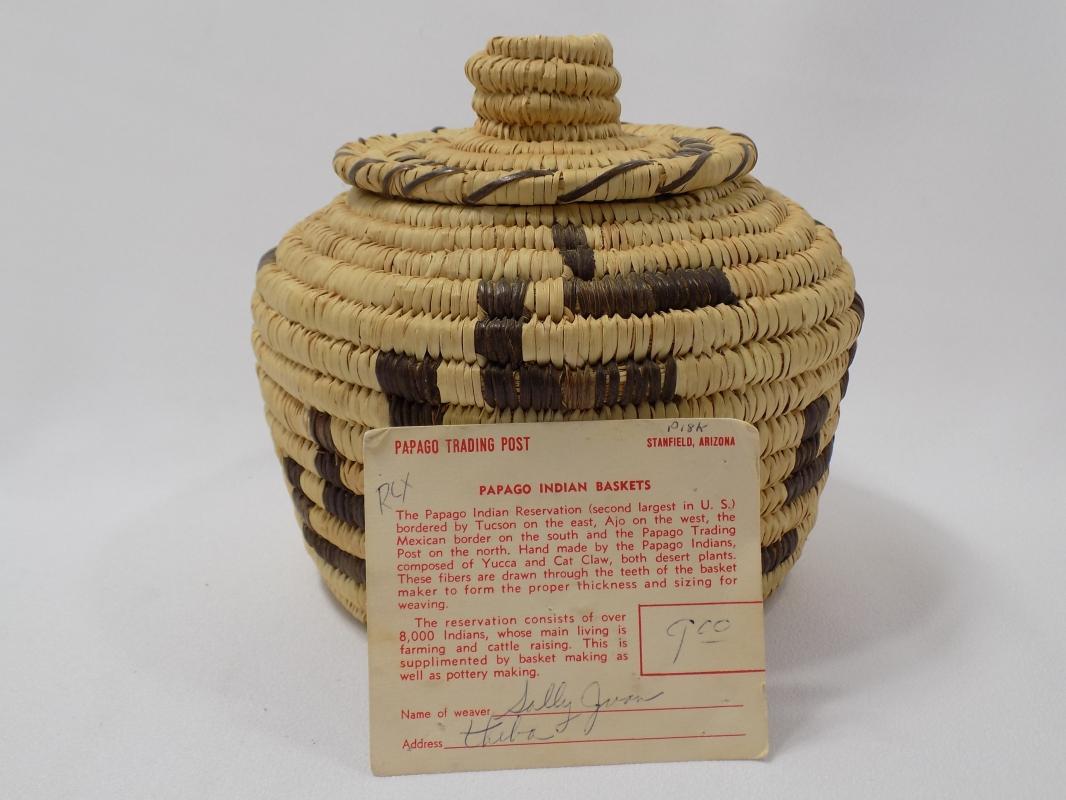 P18K
PAPAGO TRADING POST STANFIELD, ARIZONA
RCX
PAPAGO INDIAN BASKETS
The Papago Indian Reservation (second largest in U. S.)
bordered by Tucson on the east, Ajo on the west, the
Mexican border on the south and the Papago Trading
Post on the north. Hand made by the Papago Indians,
composed of Yucca and Cat Claw, both desert plants.
These fibers are drawn through the teeth of the basket
maker to form the proper thickness and sizing for
weaving.
The reservation consists of over
8,000 Indians, whose main living is
farming and cattle raising. This is
supplimented by basket making as
well as pottery making.
9 00
Name of weaver Sally Juan
Address